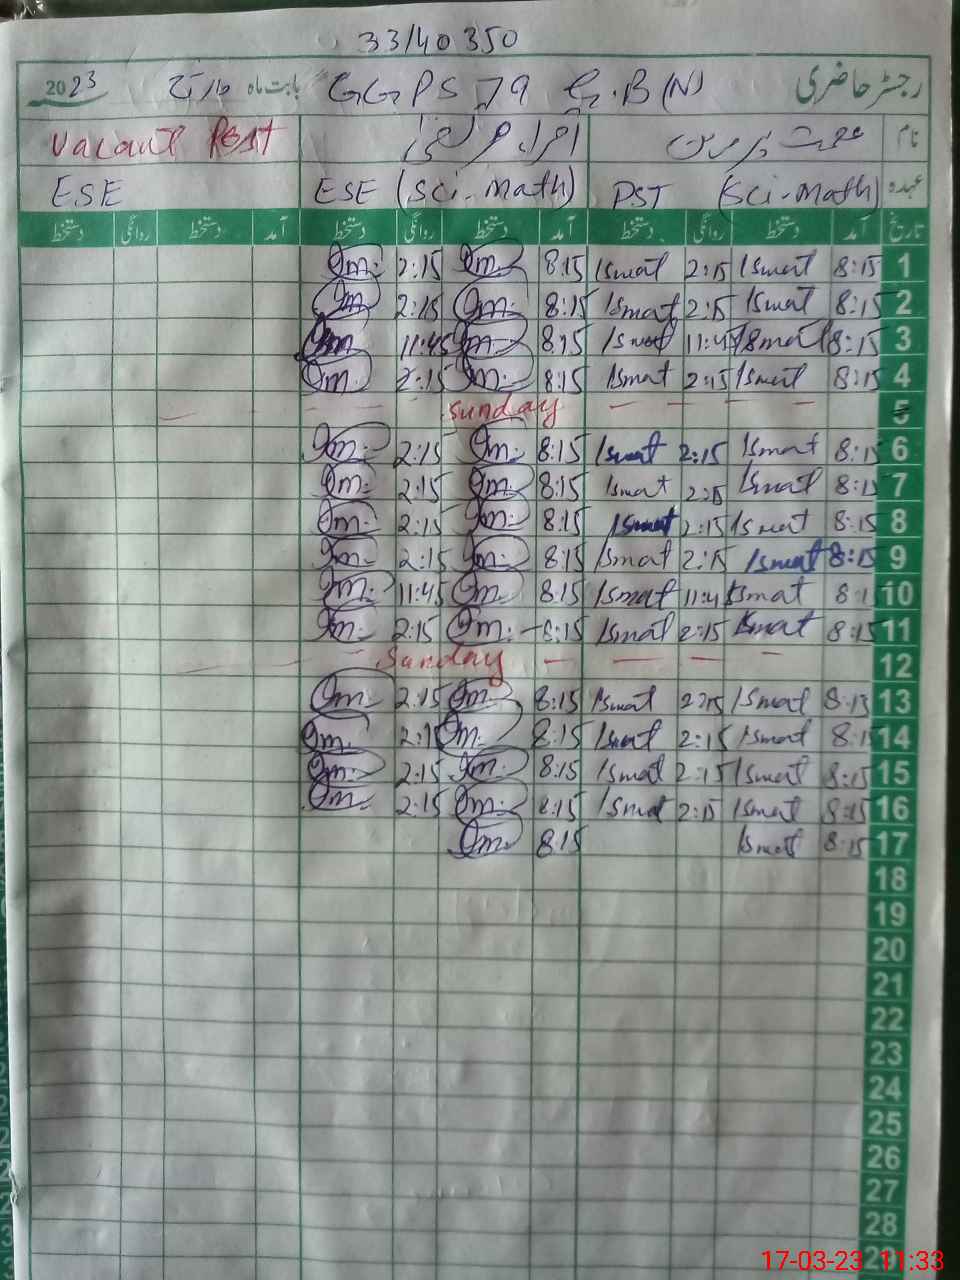 33/40350
رجسٹر حاضری GGPS 79 G.B(N) بابت ماہ مارچ 2023
نام عصمت پروین Vacant Post
عہدہ PST (Sci-Math) ESE (Sci-Math) ESE
تاریخ آمد دستخط روانگی دستخط آمد دستخط روانگی دستخط آمد دستخط روانگی دستخط
1 8:15 Ismat 2:15 Ismat 8:15 Im. 2:15 Im.
2 8:15 Ismat 2:15 Ismat 8:15 Im. 2:15 Im.
3 8:15 Ismat 11:45 Ismat 8:15 Im. 11:45 Im.
4 8:15 Ismat 2:15 Ismat 8:15 Im. 2:15 Im.
5 Sunday
6 8:15 Ismat 2:15 Ismat 8:15 Im. 2:15 Im.
7 8:15 Ismat 2:15 Ismat 8:15 Im. 2:15 Im.
8 8:15 Ismat 2:15 Ismat 8:15 Im. 2:15 Im.
9 8:15 Ismat 2:15 Ismat 8:15 Im. 2:15 Im.
10 8:15 Ismat 11:45 Ismat 8:15 Im. 11:45 Im.
11 8:15 Ismat 2:15 Ismat 8:15 Im. 2:15 Im.
12 Sunday
13 8:15 Ismat 2:15 Ismat 8:15 Im. 2:15 Im.
14 8:15 Ismat 2:15 Ismat 8:15 Im. 2:15 Im.
15 8:15 Ismat 2:15 Ismat 8:15 Im. 2:15 Im.
16 8:15 Ismat 2:15 Ismat 8:15 Im. 2:15 Im.
17 8:15 Ismat 8:15 Im.
18
19
20
21
22
23
24
25
26
27
28
17-03-23 11:33